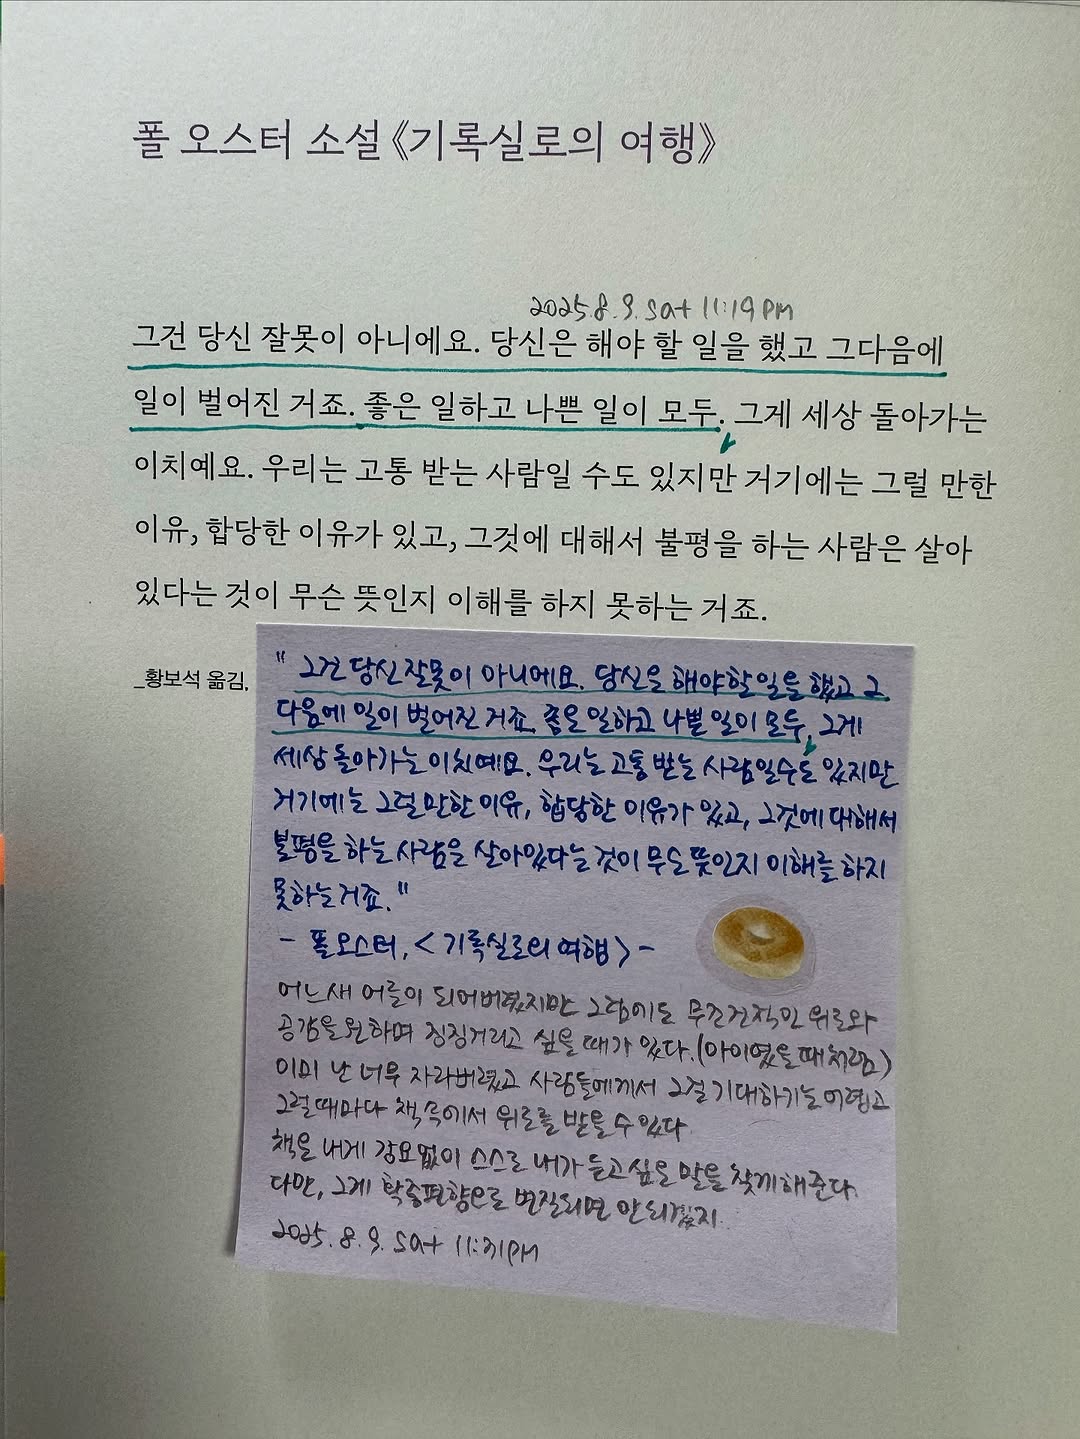 폴 오스터 소설 《기록실로의 여행》
2025.8.9.sat 11:19PM
그건 당신 잘못이 아니에요. 당신은 해야 할 일을 했고 그다음에
일이 벌어진 거죠. 좋은 일하고 나쁜 일이 모두. 그게 세상 돌아가는
이치예요. 우리는 고통 받는 사람일 수도 있지만 거기에는 그럴 만한
이유, 합당한 이유가 있고, 그것에 대해서 불평을 하는 사람은 살아
있다는 것이 무슨 뜻인지 이해를 하지 못하는 거죠.
_황보석 옮김,
" 그건 당신잘못이 아니에요. 당신은 해야할일을 했고 그
다음에 일이 벌어진 거죠. 좋은일하고 나쁜 일이 모두, 그게
세상돌아가는이치예요. 우리는고통받는 사람일수도 있지만
거기에는 그럴만한 이유, 합당한 이유가 있고, 그것에대해서
불평을 하는 사람은 살아있다는 것이 무슨 뜻인지 이해를 하지
못하는거죠."
- 폴오스터, <기록실로의 여행> -
어느새 어른이 되어버렸지만 그럼에도 무조건적인 위로와
공감을원하며 징징거리고 싶을때가 있다.(아이였을때처럼)
이미 난 너무 자라버렸고 사람들에게서 그걸기대하기는어렵고
그럴때마다 책속에서 위로를 받을수있다.
책은 내게 강요없이 스스로 내가 듣고싶은 말을 찾게해준다.
다만, 그게 확증편향으로 변질되면 안되겠지.
2025.8.9.sat 11:31PM